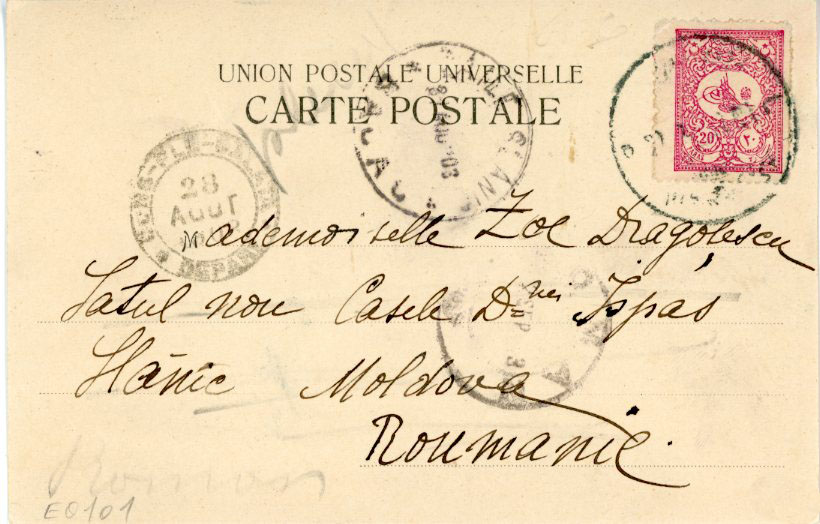 UNION POSTALE UNIVERSELLE
CARTE POSTALE
20 ٢٠
28
AOUT
DEPART
Mademoiselle Zoe Dragolescu
Satul nou Casele D=nei Ispas
Slănic Moldova
Roumanie.
Roman
EQ101